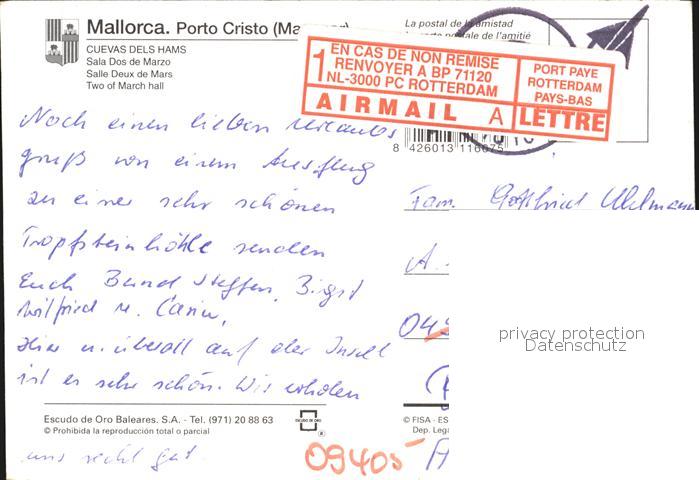 Mallorca. Porto Cristo (Ma
CUEVAS DELS HAMS
Sala Dos de Marzo
Salle Deux de Mars
Two of March hall
La postal de la amistad
La carte postale de l'amitié
1 EN CAS DE NON REMISE
RENVOYER A BP 71120
NL-3000 PC ROTTERDAM
PORT PAYE
ROTTERDAM
PAYS-BAS
AIRMAIL A LETTRE
8 426013 116675
Noch einen lieben Urlaubs
gruß von einem Ausflug
zu einer sehr schönen
Tropfsteinhöhle senden
Euch Bernd Steffen, Birgit
Wilfried u. Carin,
Hier u. überall auf der Insel
ist es sehr schön. Wir erholen
uns recht gut.
Fam. Gottfried Uhlmann
A.
04
privacy protection
Datenschutz
Escudo de Oro Baleares. S.A. - Tel. (971) 20 88 63
© Prohibida la reproducción total o parcial
ESCUDO DE ORO
®
© FISA - ES
Dep. Lega
09405